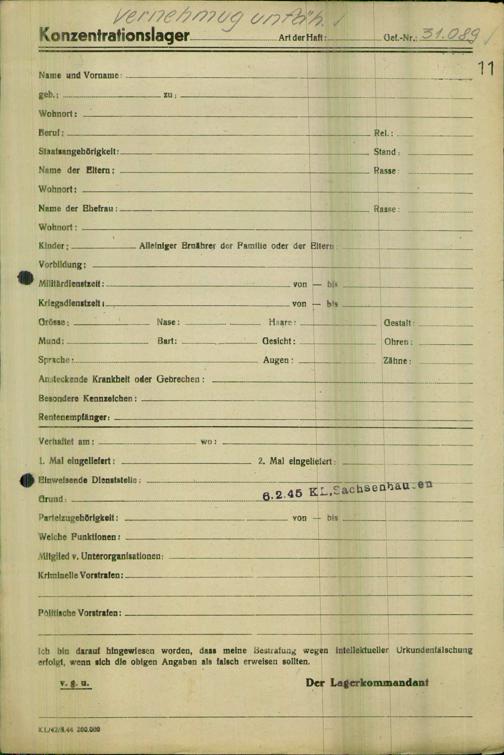 Vernehmug unfäh.
Konzentrationslager Art der Haft: Gef.-Nr.: 31.089
11
Name und Vorname:
geb.: zu:
Wohnort:
Beruf: Rel.:
Staatsangehörigkeit: Stand:
Name der Eltern: Rasse:
Wohnort:
Name der Ehefrau: Rasse:
Wohnort:
Kinder: Alleiniger Ernährer der Familie oder der Eltern
Vorbildung:
Militärdienstzeit: von — bis
Kriegsdienstzeit: von — bis
Grösse: Nase: Haare: Gestalt:
Mund: Bart: Gesicht: Ohren:
Sprache: Augen: Zähne:
Ansteckende Krankheit oder Gebrechen:
Besondere Kennzeichen:
Rentenempfänger:
Verhaftet am: wo:
1. Mal eingeliefert: 2. Mal eingeliefert:
Einweisende Dienststelle:
Grund: 6.2.45 KL.Sachsenhausen
Parteizugehörigkeit: von — bis
Welche Funktionen:
Mitglied v. Unterorganisationen:
Kriminelle Vorstrafen:
Politische Vorstrafen:
Ich bin darauf hingewiesen worden, dass meine Bestrafung wegen intellektueller Urkundenfälschung
erfolgt, wenn sich die obigen Angaben als falsch erweisen sollten.
v. g. u. Der Lagerkommandant
KL/42/8.44 200.000